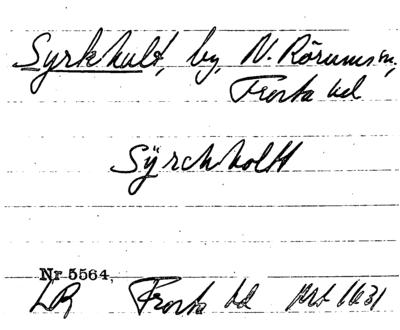 Syrkhult, by, N. Rörums sn.,
Frosta hd
Sÿrchholtt
Nr 5564,
LR Frosta hd 1631